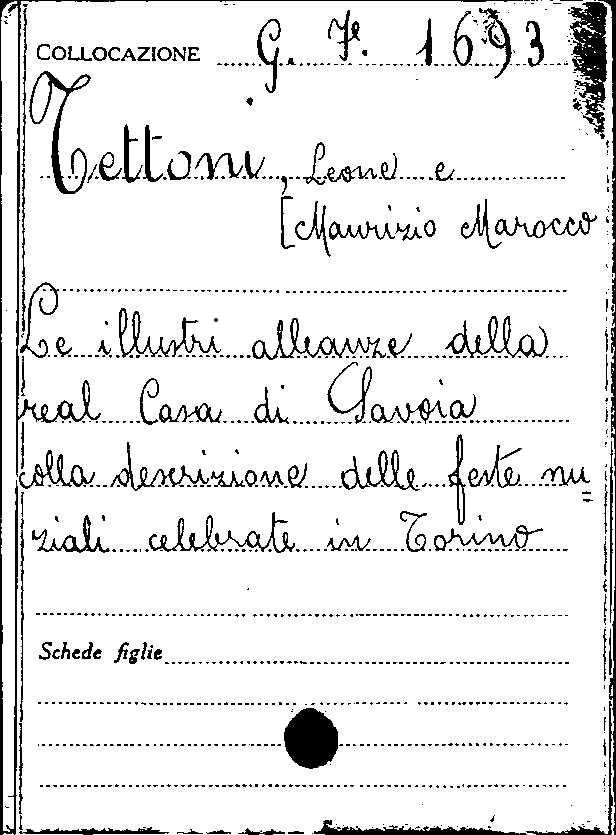 COLLOCAZIONE G. Fe. 1693
Tettoni, Leone e
[Maurizio Marocco
Le illustri alleanze della
real Casa di Savoia
colla descrizione delle feste nu=
ziali celebrate in Torino
Schede figlie